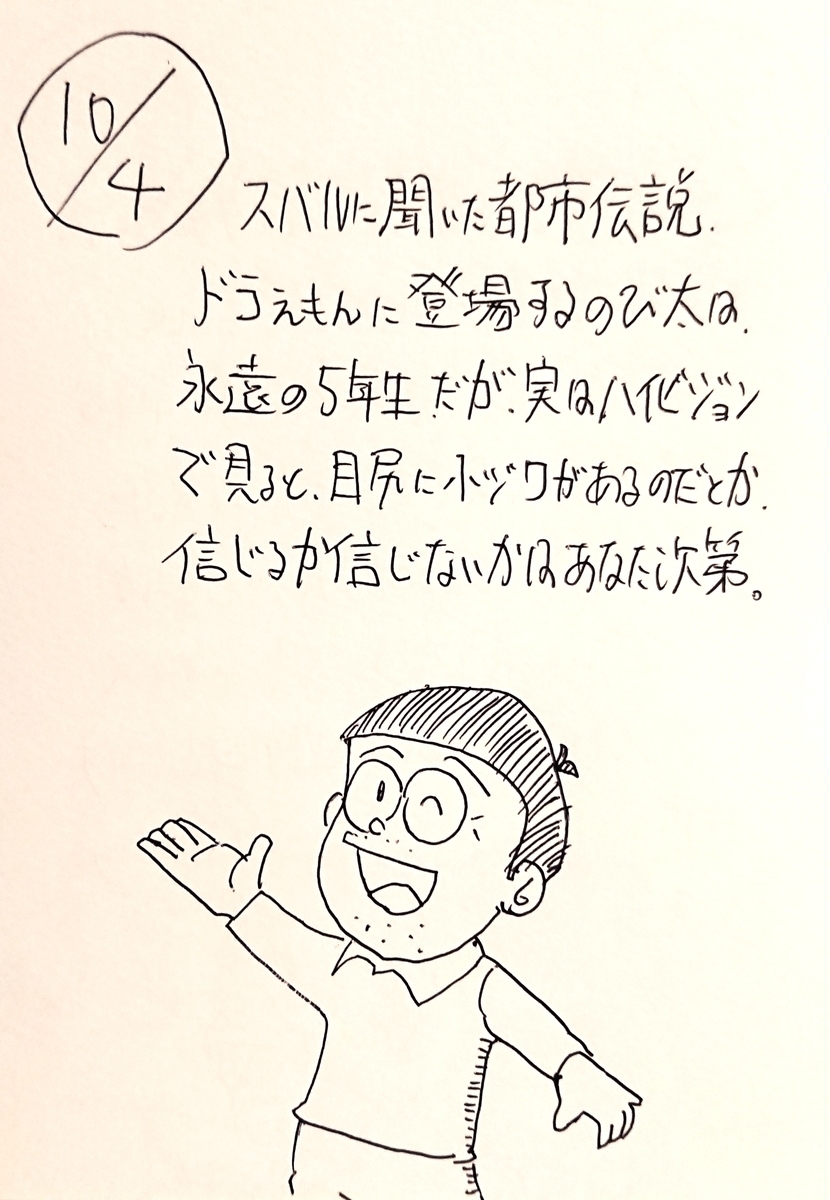 10/4
スバルに聞いた都市伝説.
ドラえもんに登場するのび太は.
永遠の5年生だが.実はハイビジョン
で見ると、目尻に小ヅワがあるのだとか.
信じるか信じないかはあなた次第。